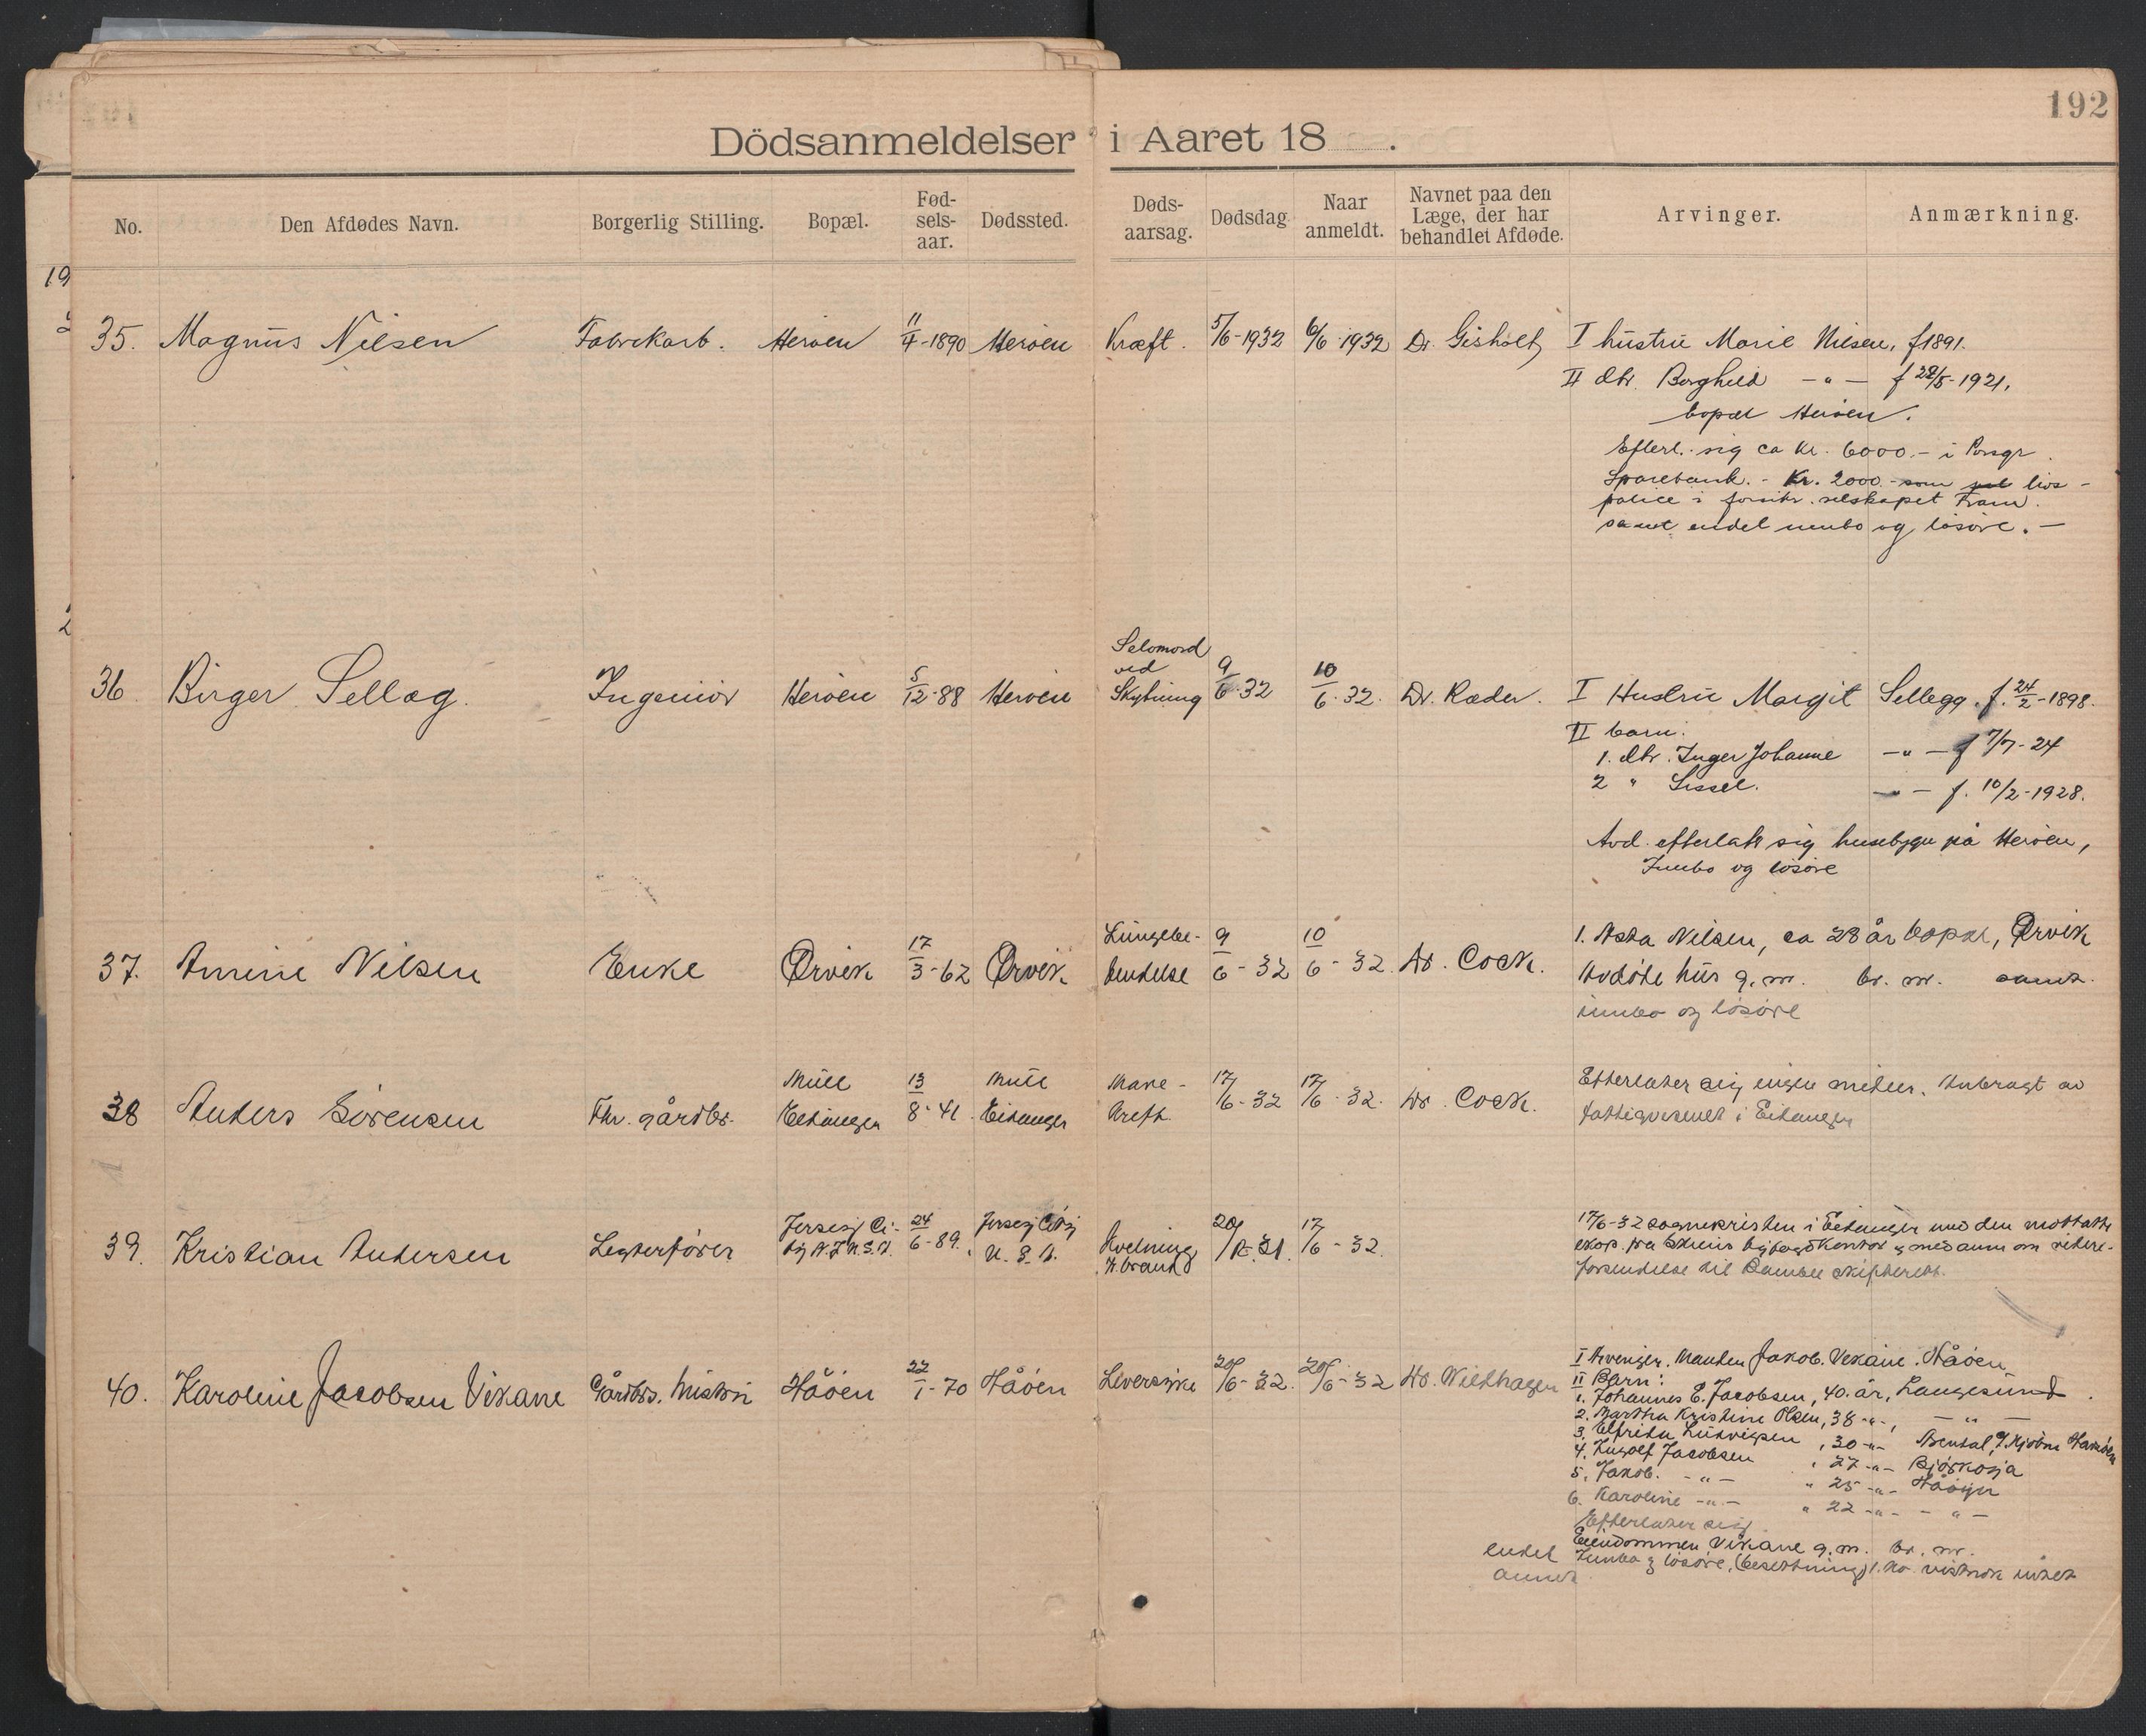 192
Dödsanmeldelser i Aaret 18 .
No. Den Afdødes Navn. Borgerlig Stilling. Bopæl. Fød- Dødssted. Døds- Dødsdag Naar Navnet paa den Arvinger. Anmærkning.
sels- aarsag. anmeldt. Læge, der har
aar. behandlet Afdøde.
19
35. Magnus Nilsen Fabrikarb. Herøen 11/4-1890 Herøen Kræft. 5/6-1932 6/6-1932 Dr. Gisholt I hustru Marie Nilsen, f 1891.
II dtr. Borghild -"- f 22/5-1921,
bopæl Herøen.
Efterl. sig ca kr. 6000.- i Porsgr.
Sparebank. - Kr. 2000.- som livs-
police i forsikr. selskapet Fram.
samt endel innbo og løsøre. -
36 Birger Sellæg. Ingeniør Herøen 5/12-88 Herøen Selvmord
ved
Skytning 9/6-32 10/6-32. Dr. Ræder. I Hustru Margit Sellegg. f. 24/2-1898.
II barn.
1. dtr. Inger Johanne -"- f 7/7-24
2 " Sissel. -"- f. 10/2-1928.
Avd. efterlatt sig husebygn på Herøen,
Innbo og løsøre
37. Amine Nilsen Enke Ørvik 17/3-62 Ørvik Lungebe-
tendelse 9/6-32 10/6-32. Dr. Cock. 1. Asta Nilsen, ca 28 år bopæl, Ørvik
Avdøde hus g. nr. br. nr. samt
innbo og løsøre
38 Anders Sørensen Fhv. gårdbr. Mule
Eidanger 13/8-41. Mule
Eidanger Mave-
kreft. 17/6-32 17/6-32. Dr. Cock. Efterlater sig ingen midler. Anbragt av
fattigvesenet i Eidanger
39. Kristian Andersen Legterfører Jersey Ci-
ty N.J. U.S.A. 24/6-89. Jersey City
U.S.A. Kvelning
v. brand 20/12-31. 17/6-32. 17/6-32 sognepresten i Eidanger med den mottatte
eksp. fra Skiens byfogdkontor med anm om videre-
forsendelse til Bamble skifterett.
40. Karoline Jacobsen Vikane Gårdbr. hustru Håøen 22/1-70 Håøen Leversyke 20/6-32. 20/6-32 Dr. Wilthagen I Arvinger. Manden Jakob. Vikane. Håøen
II Barn:
1. Johannes E. Jacobsen, 40. år, Langesund.
2. Martha Kristine Olsen, 38 -"-, -"-
3. Elfrida Ludvigsen, 30 -"-
4. Ingolf Jacobsen, 27 -"- Bjørkøya
5. Jakob. -"- " 25 -"- Håøya
6. Karoline -"- " 22 -"- -"-
Efterlater sig
Eiendommen Vikane g. nr. br. nr.
endel Innbo og løsøre, (besetning) vistnok intet
annet